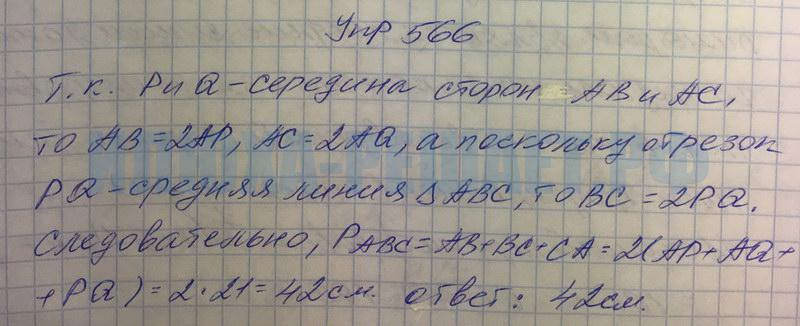 Упр 566
Т.к. P и Q - середина сторон AB и AC,
то AB = 2AP, AC = 2AQ, а поскольку отрезок
PQ - средняя линия △ ABC, то BC = 2PQ.
Следовательно, PABC = AB + BC + CA = 2(AP + AQ +
+ PQ) = 2 · 21 = 42см. ответ: 42см.